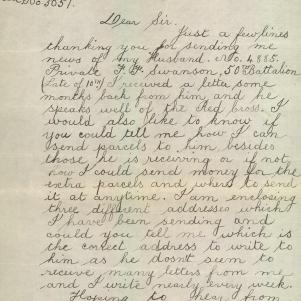 Dear Sir.
Just a few lines
thanking you for sending me
news of my Husband. No. 4885.
Private F. P. Swanson, 50th Battalion
(Late of 10th) I received a letter some
months back from him, and he
speaks well of the Red Cross. I
would also like to know if
you could tell me how I can
send parcels to him besides
those he is recurring or if not
how I could send money for the
extra parcels and where to send
it at anytime. I am enclosing
three different addresses which
I have been sending and
could you tell me which is
the correct address to write to
him as he dosn't seem to
receive many letters from me
and I write nearly every week.
Hoping to hear from